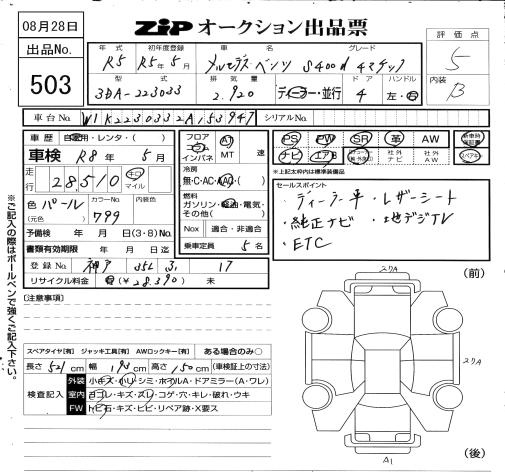 08月28日
ZIP オークション出品票
評価点
5
出品No.
503
年式 初年度登録 車名 グレード
R5 R5年5月 メルセデス・ベンツ S400d 4マチック
型式 排気量 ドア ハンドル
3DA-223033 2.920 ディーラー・並行 4 左・右
内装
B
車台No. W1K2230332A153947 シリアルNo.
車歴 自家用・レンタ・( )
車検 R8年5月
走行 28,510 キロ マイル
色 パール (元色) カラーNo. 799 内装色
予備検 年 月 日(3・8)No.
書類有効期限 年 月 日迄
登録No. 神戸 356 ろ 17
リサイクル料金 有(¥28.390) 未
フロア コラム インパネ AT MT 速
冷房 無・C・AC・AAC・( )
燃料 ガソリン・軽油・電気・その他( )
Nox 適合・非適合
乗車定員 5名
PS PW SR 革 AW 新車時保証書
ナビ エアB 社外ナビ 社外AW スペアキー
*上記太枠内は標準装備品
セールスポイント
・ディーラー車 ・レザーシート
・純正ナビ ・地デジTV
・ETC
[注意事項]
スペアタイヤ[有] ジャッキ工具[有] AWロックキー[有] ある場合のみ○
長さ521cm 幅195cm 高さ150cm (車検証上の寸法)
検査記入
外装 小キズ・小ハリ・シミ・ホイルA・ドアミラー(A・ワレ)
室内 ヨゴレ・キズ・スレ・コゲ・穴・キレ・破れ・ウキ
FW トビ石・キズ・ヒビ・リペア跡・X要ス
※ご記入の際はボールペンで強くご記入下さい。
スリA
(前)
スリA
A1
(後)